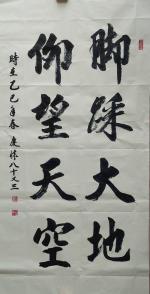 脚踩大地
仰望天空
時在乙巳年春建林八十又三